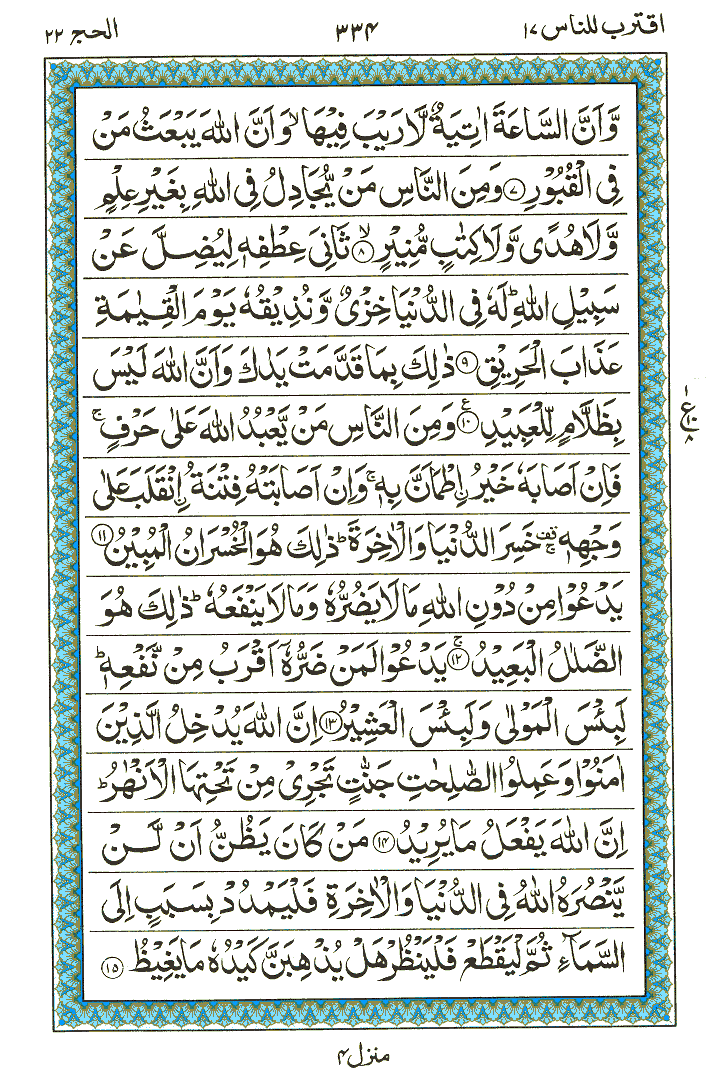 اقترب للناس ۱۷ ۳۳۴ الحج ۲۲
وَّاَنَّ السَّاعَةَ اٰتِيَةٌ لَّا رَيْبَ فِيْهَا ۙ وَاَنَّ اللّٰهَ يَبْعَثُ مَنْ
فِى الْقُبُوْرِ ۷ وَمِنَ النَّاسِ مَنْ يُّجَادِلُ فِى اللّٰهِ بِغَيْرِ عِلْمٍ
وَّلَا هُدًى وَّلَا كِتٰبٍ مُّنِيْرٍ ۙ ۸ ثَانِىَ عِطْفِهٖ لِيُضِلَّ عَنْ
سَبِيْلِ اللّٰهِ ؕ لَهٗ فِى الدُّنْيَا خِزْىٌ وَّنُذِيْقُهٗ يَوْمَ الْقِيٰمَةِ
عَذَابَ الْحَرِيْقِ ۹ ذٰلِكَ بِمَا قَدَّمَتْ يَدٰكَ وَاَنَّ اللّٰهَ لَيْسَ
بِظَلَّامٍ لِّلْعَبِيْدِ ۱۰ ع وَمِنَ النَّاسِ مَنْ يَّعْبُدُ اللّٰهَ عَلٰى حَرْفٍ ۚ
فَاِنْ اَصَابَهٗ خَيْرُ ۨاطْمَاَنَّ بِهٖ ۚ وَاِنْ اَصَابَتْهُ فِتْنَةُ ۨانْقَلَبَ عَلٰى
وَجْهِهٖ ۚ قف خَسِرَ الدُّنْيَا وَالْاٰخِرَةَ ؕ ذٰلِكَ هُوَ الْخُسْرَانُ الْمُبِيْنُ ۱۱
يَدْعُوْا مِنْ دُوْنِ اللّٰهِ مَا لَا يَضُرُّهٗ وَمَا لَا يَنْفَعُهٗ ؕ ذٰلِكَ هُوَ
الضَّلٰلُ الْبَعِيْدُ ۚ ۱۲ يَدْعُوْا لَمَنْ ضَرُّهٗۤ اَقْرَبُ مِنْ نَّفْعِهٖ ؕ
لَبِئْسَ الْمَوْلٰى وَلَبِئْسَ الْعَشِيْرُ ۱۳ اِنَّ اللّٰهَ يُدْخِلُ الَّذِيْنَ
اٰمَنُوْا وَعَمِلُوا الصّٰلِحٰتِ جَنّٰتٍ تَجْرِىْ مِنْ تَحْتِهَا الْاَنْهٰرُ ؕ
اِنَّ اللّٰهَ يَفْعَلُ مَا يُرِيْدُ ۱۴ مَنْ كَانَ يَظُنُّ اَنْ لَّنْ
يَّنْصُرَهُ اللّٰهُ فِى الدُّنْيَا وَالْاٰخِرَةِ فَلْيَمْدُدْ بِسَبَبٍ اِلَى
السَّمَآءِ ثُمَّ لْيَقْطَعْ فَلْيَنْظُرْ هَلْ يُذْهِبَنَّ كَيْدُهٗ مَا يَغِيْظُ ۱۵
۱ ع ۱۰ ۸
منزل ۴